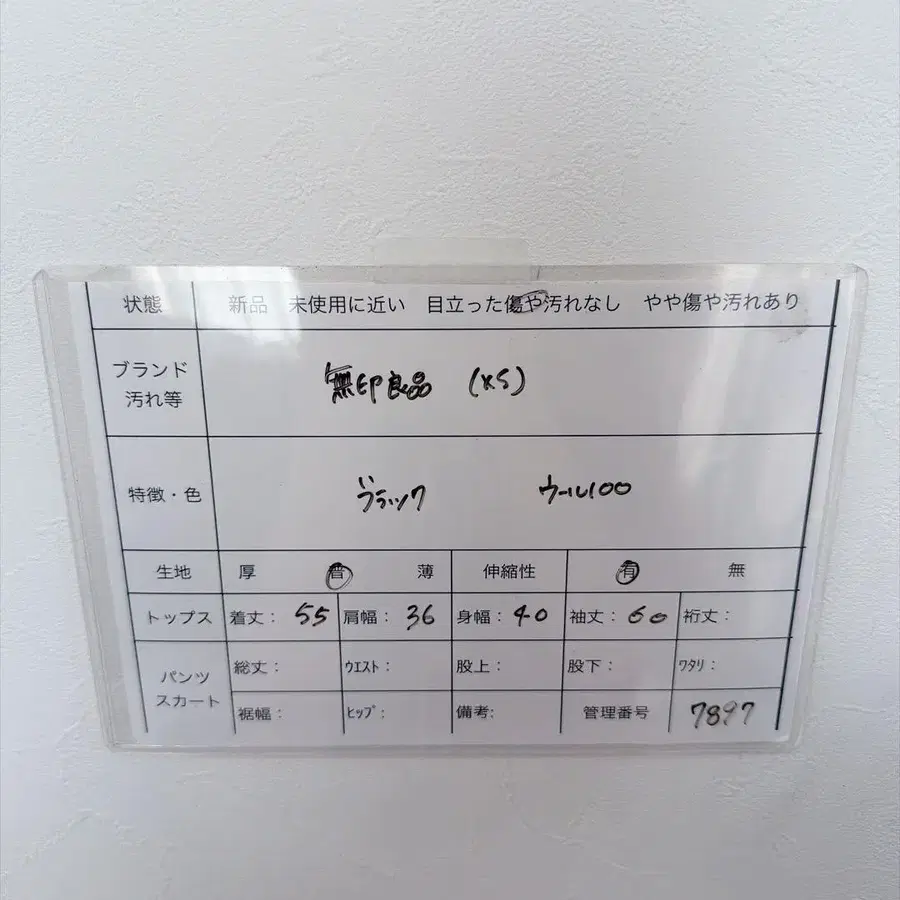 状態 新品 未使用に近い 目立った傷や汚れなし やや傷や汚れあり
ブランド
汚れ等
無印良品 (XS)
特徴・色 ブラック ウール100
生地 厚 普 薄 伸縮性 有 無
トップス 着丈: 55 肩幅: 36 身幅: 40 袖丈: 60 裄丈:
パンツ
スカート
総丈: ウエスト: 股上: 股下: ワタリ:
裾幅: ヒップ: 備考: 管理番号 7897